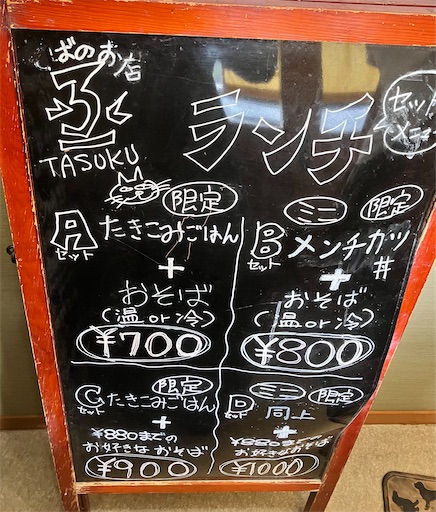 ばのお店
TASUKU
ランチ
セットメニュー
限定
Aセット
たきこみごはん
+
おそば
(温or冷)
¥700
ミニ
限定
Bセット
メンチカツ丼
+
おそば
(温or冷)
¥800
限定
Cセット
たきこみごはん
+
¥880までの
お好きなおそば
¥900
ミニ
限定
Dセット
同上
+
¥880までの
お好きなおそば
¥1000